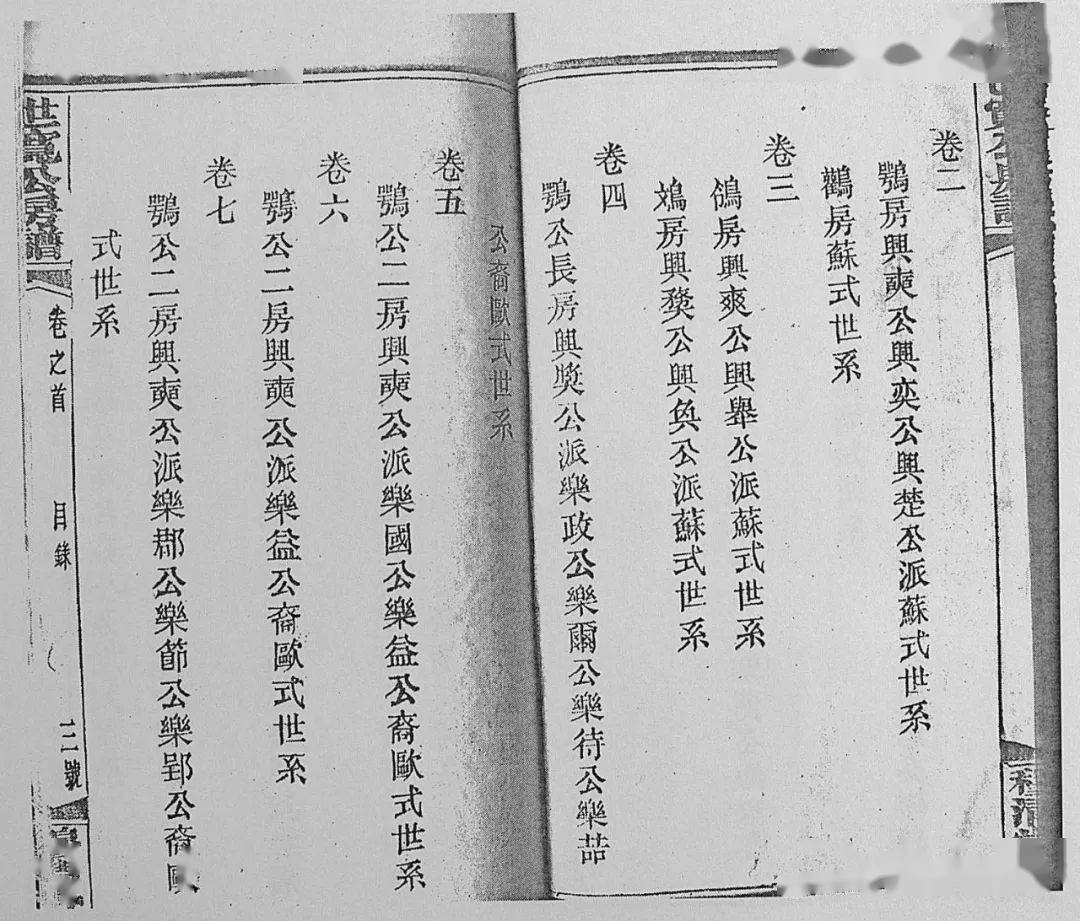 卷二
鶚房興奭公興奕公興楚公派蘇式世系
鸛房蘇式世系
卷三
鴿房興爽公興舉公派蘇式世系
鴆房興獘公興奐公派蘇式世系
卷四
鶚公長房興奬公派樂政公樂爾公樂待公樂喆
公裔歐式世系
卷五
鶚公二房興奭公派樂國公樂益公裔歐式世系
卷六
鶚公二房興奭公派樂益公裔歐式世系
卷七
鶚公二房興奭公派樂郡公樂節公樂郢公裔歐
式世系
公房譜
卷之首
目錄
二號